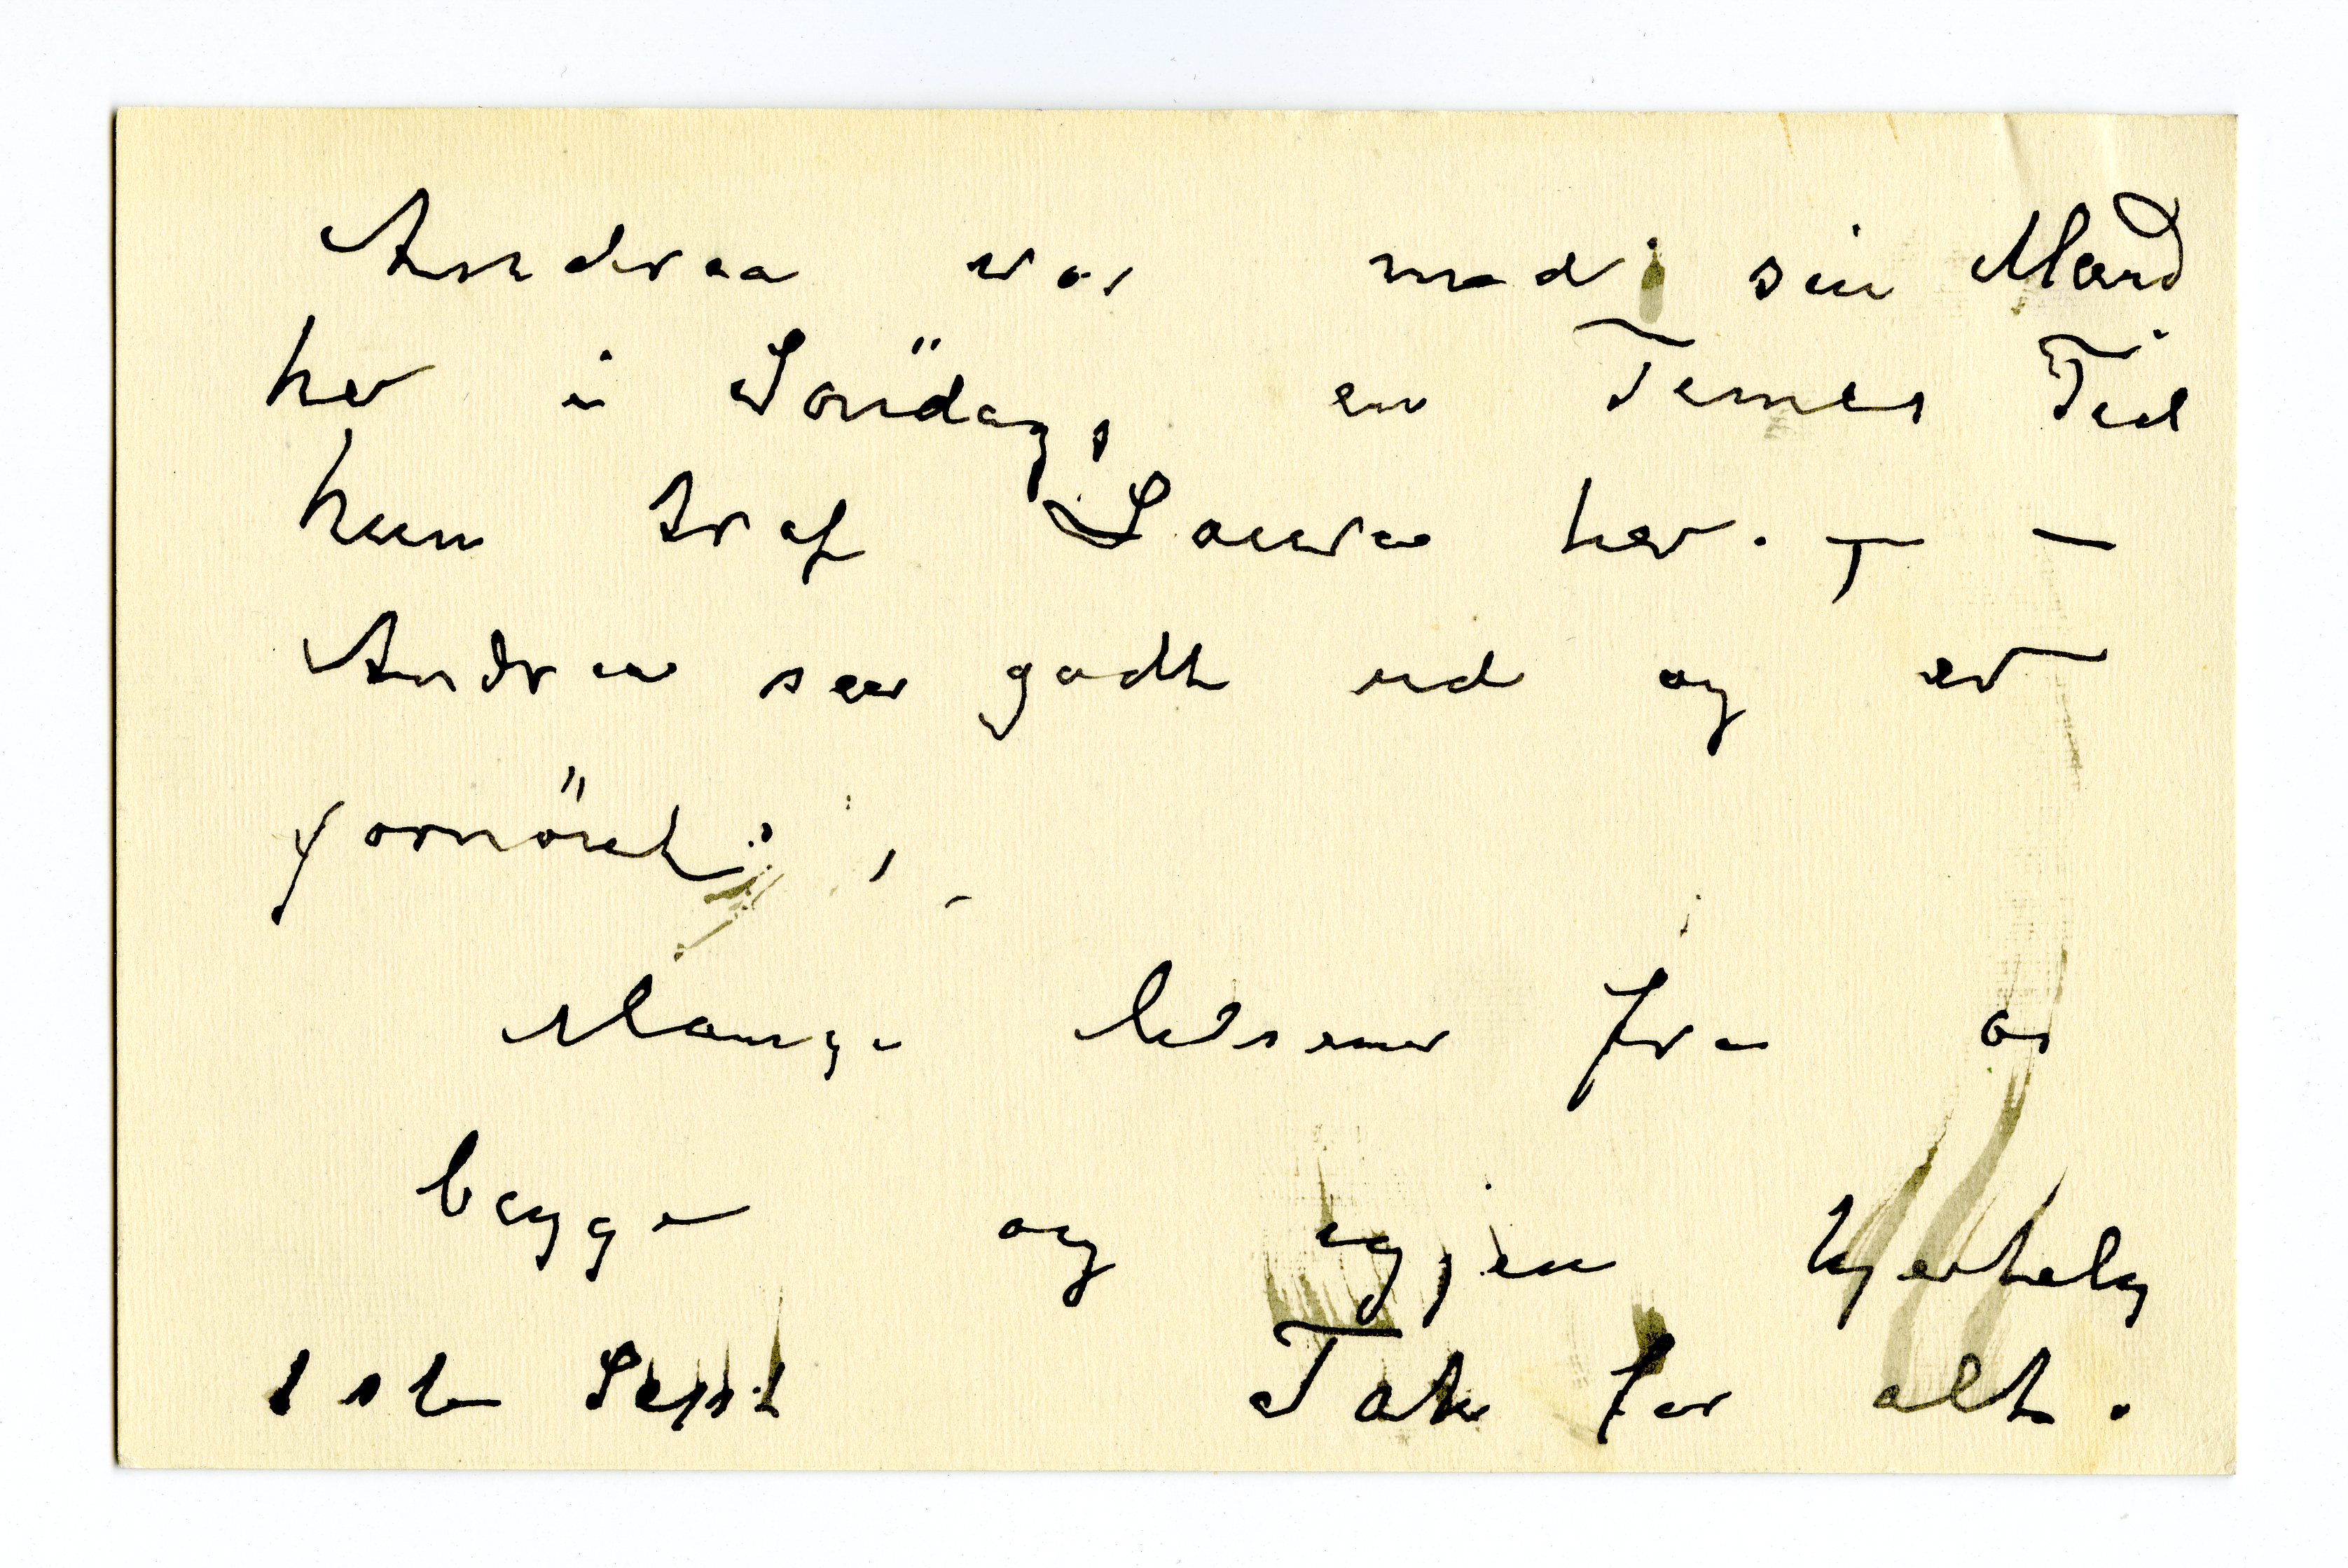 Andrea var med sin Mand
her i Söndag, en Times Tid
hun traf Laura her. — —
Andrea saa godt ud og er
fornöiet. —
Mange hilsener fra os
begge og igjen hjertelig
1ste Sept Tak for alt.